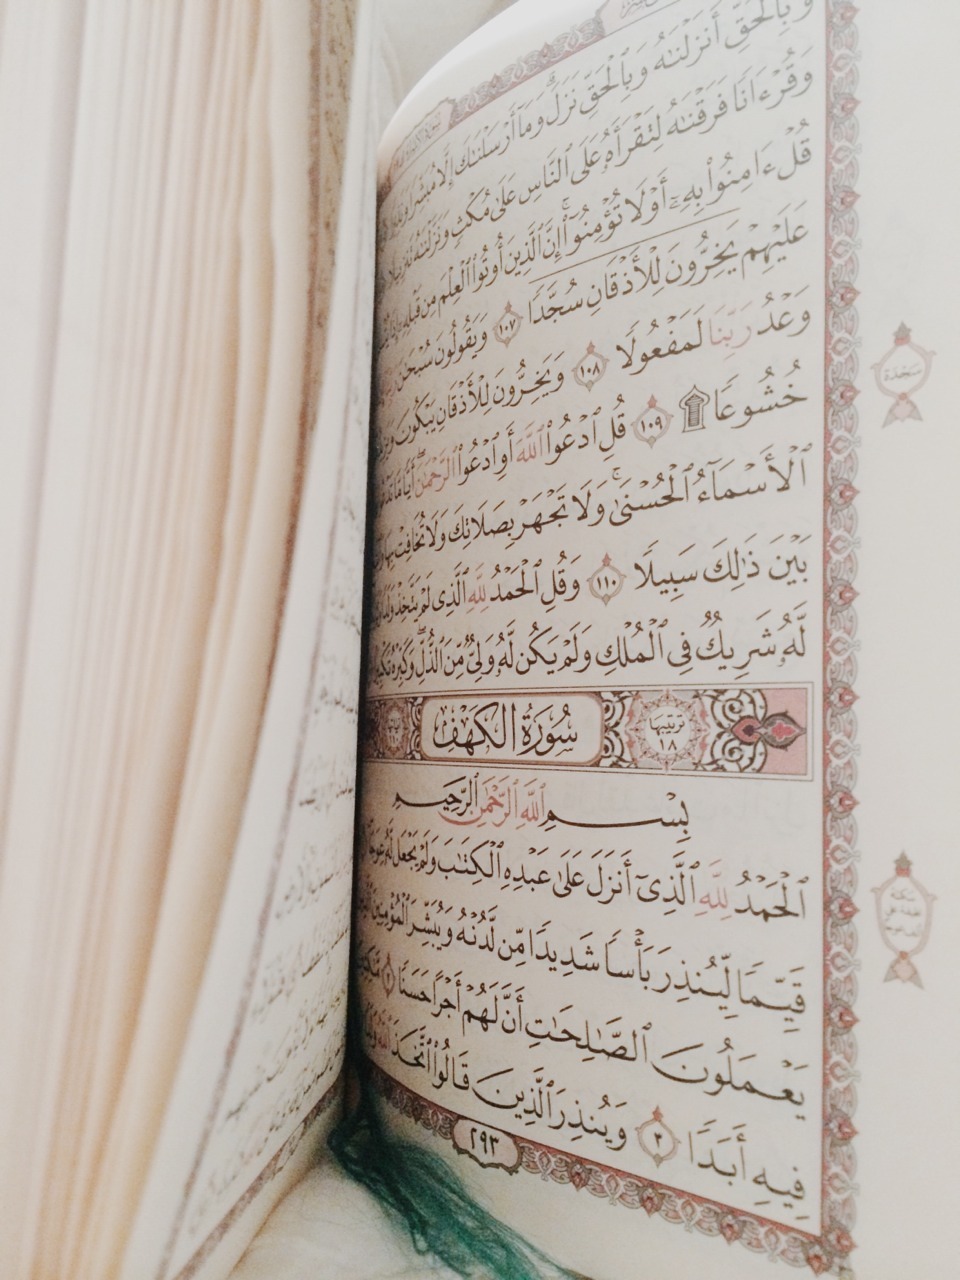 وَبِٱلْحَقِّ أَنزَلْنَٰهُ وَبِٱلْحَقِّ نَزَلَ ۗ وَمَآ أَرْسَلْنَٰكَ إِلَّا مُبَشِّرًا
وَقُرْءَانًا فَرَقْنَٰهُ لِتَقْرَأَهُۥ عَلَى ٱلنَّاسِ عَلَىٰ مُكْثٍ وَنَزَّلْنَٰهُ تَنزِيلًا
قُلْ ءَامِنُوا۟ بِهِۦٓ أَوْ لَا تُؤْمِنُوٓا۟ ۚ إِنَّ ٱلَّذِينَ أُوتُوا۟ ٱلْعِلْمَ مِن قَبْلِهِۦٓ
عَلَيْهِمْ يَخِرُّونَ لِلْأَذْقَانِ سُجَّدًا ١٠٧ وَيَقُولُونَ سُبْحَٰنَ
وَعْدُ رَبِّنَا لَمَفْعُولًا ١٠٨ وَيَخِرُّونَ لِلْأَذْقَانِ يَبْكُونَ
خُشُوعًا ۩ ١٠٩ قُلِ ٱدْعُوا۟ ٱللَّهَ أَوِ ٱدْعُوا۟ ٱلرَّحْمَٰنَ ۖ أَيًّا مَّا
ٱلْأَسْمَآءُ ٱلْحُسْنَىٰ ۚ وَلَا تَجْهَرْ بِصَلَاتِكَ وَلَا تُخَافِتْ بِهَا
بَيْنَ ذَٰلِكَ سَبِيلًا ١١٠ وَقُلِ ٱلْحَمْدُ لِلَّهِ ٱلَّذِى لَمْ يَتَّخِذْ وَلَدًا
لَّهُۥ شَرِيكٌ فِى ٱلْمُلْكِ وَلَمْ يَكُن لَّهُۥ وَلِىٌّ مِّنَ ٱلذُّلِّ ۖ وَكَبِّرْهُ تَكْبِيرًا
ترتيبها ١٨ سُورَةُ الكَهْفِ
بِسْمِ ٱللَّهِ ٱلرَّحْمَٰنِ ٱلرَّحِيمِ
ٱلْحَمْدُ لِلَّهِ ٱلَّذِىٓ أَنزَلَ عَلَىٰ عَبْدِهِ ٱلْكِتَٰبَ وَلَمْ يَجْعَل لَّهُۥ عِوَجَا
قَيِّمًا لِّيُنذِرَ بَأْسًا شَدِيدًا مِّن لَّدُنْهُ وَيُبَشِّرَ ٱلْمُؤْمِنِينَ
يَعْمَلُونَ ٱلصَّٰلِحَٰتِ أَنَّ لَهُمْ أَجْرًا حَسَنًا ٢ مَّٰكِثِينَ
فِيهِ أَبَدًا ٣ وَيُنذِرَ ٱلَّذِينَ قَالُوا۟ ٱتَّخَذَ ٱللَّهُ
٢٩٣
سَجْدَة